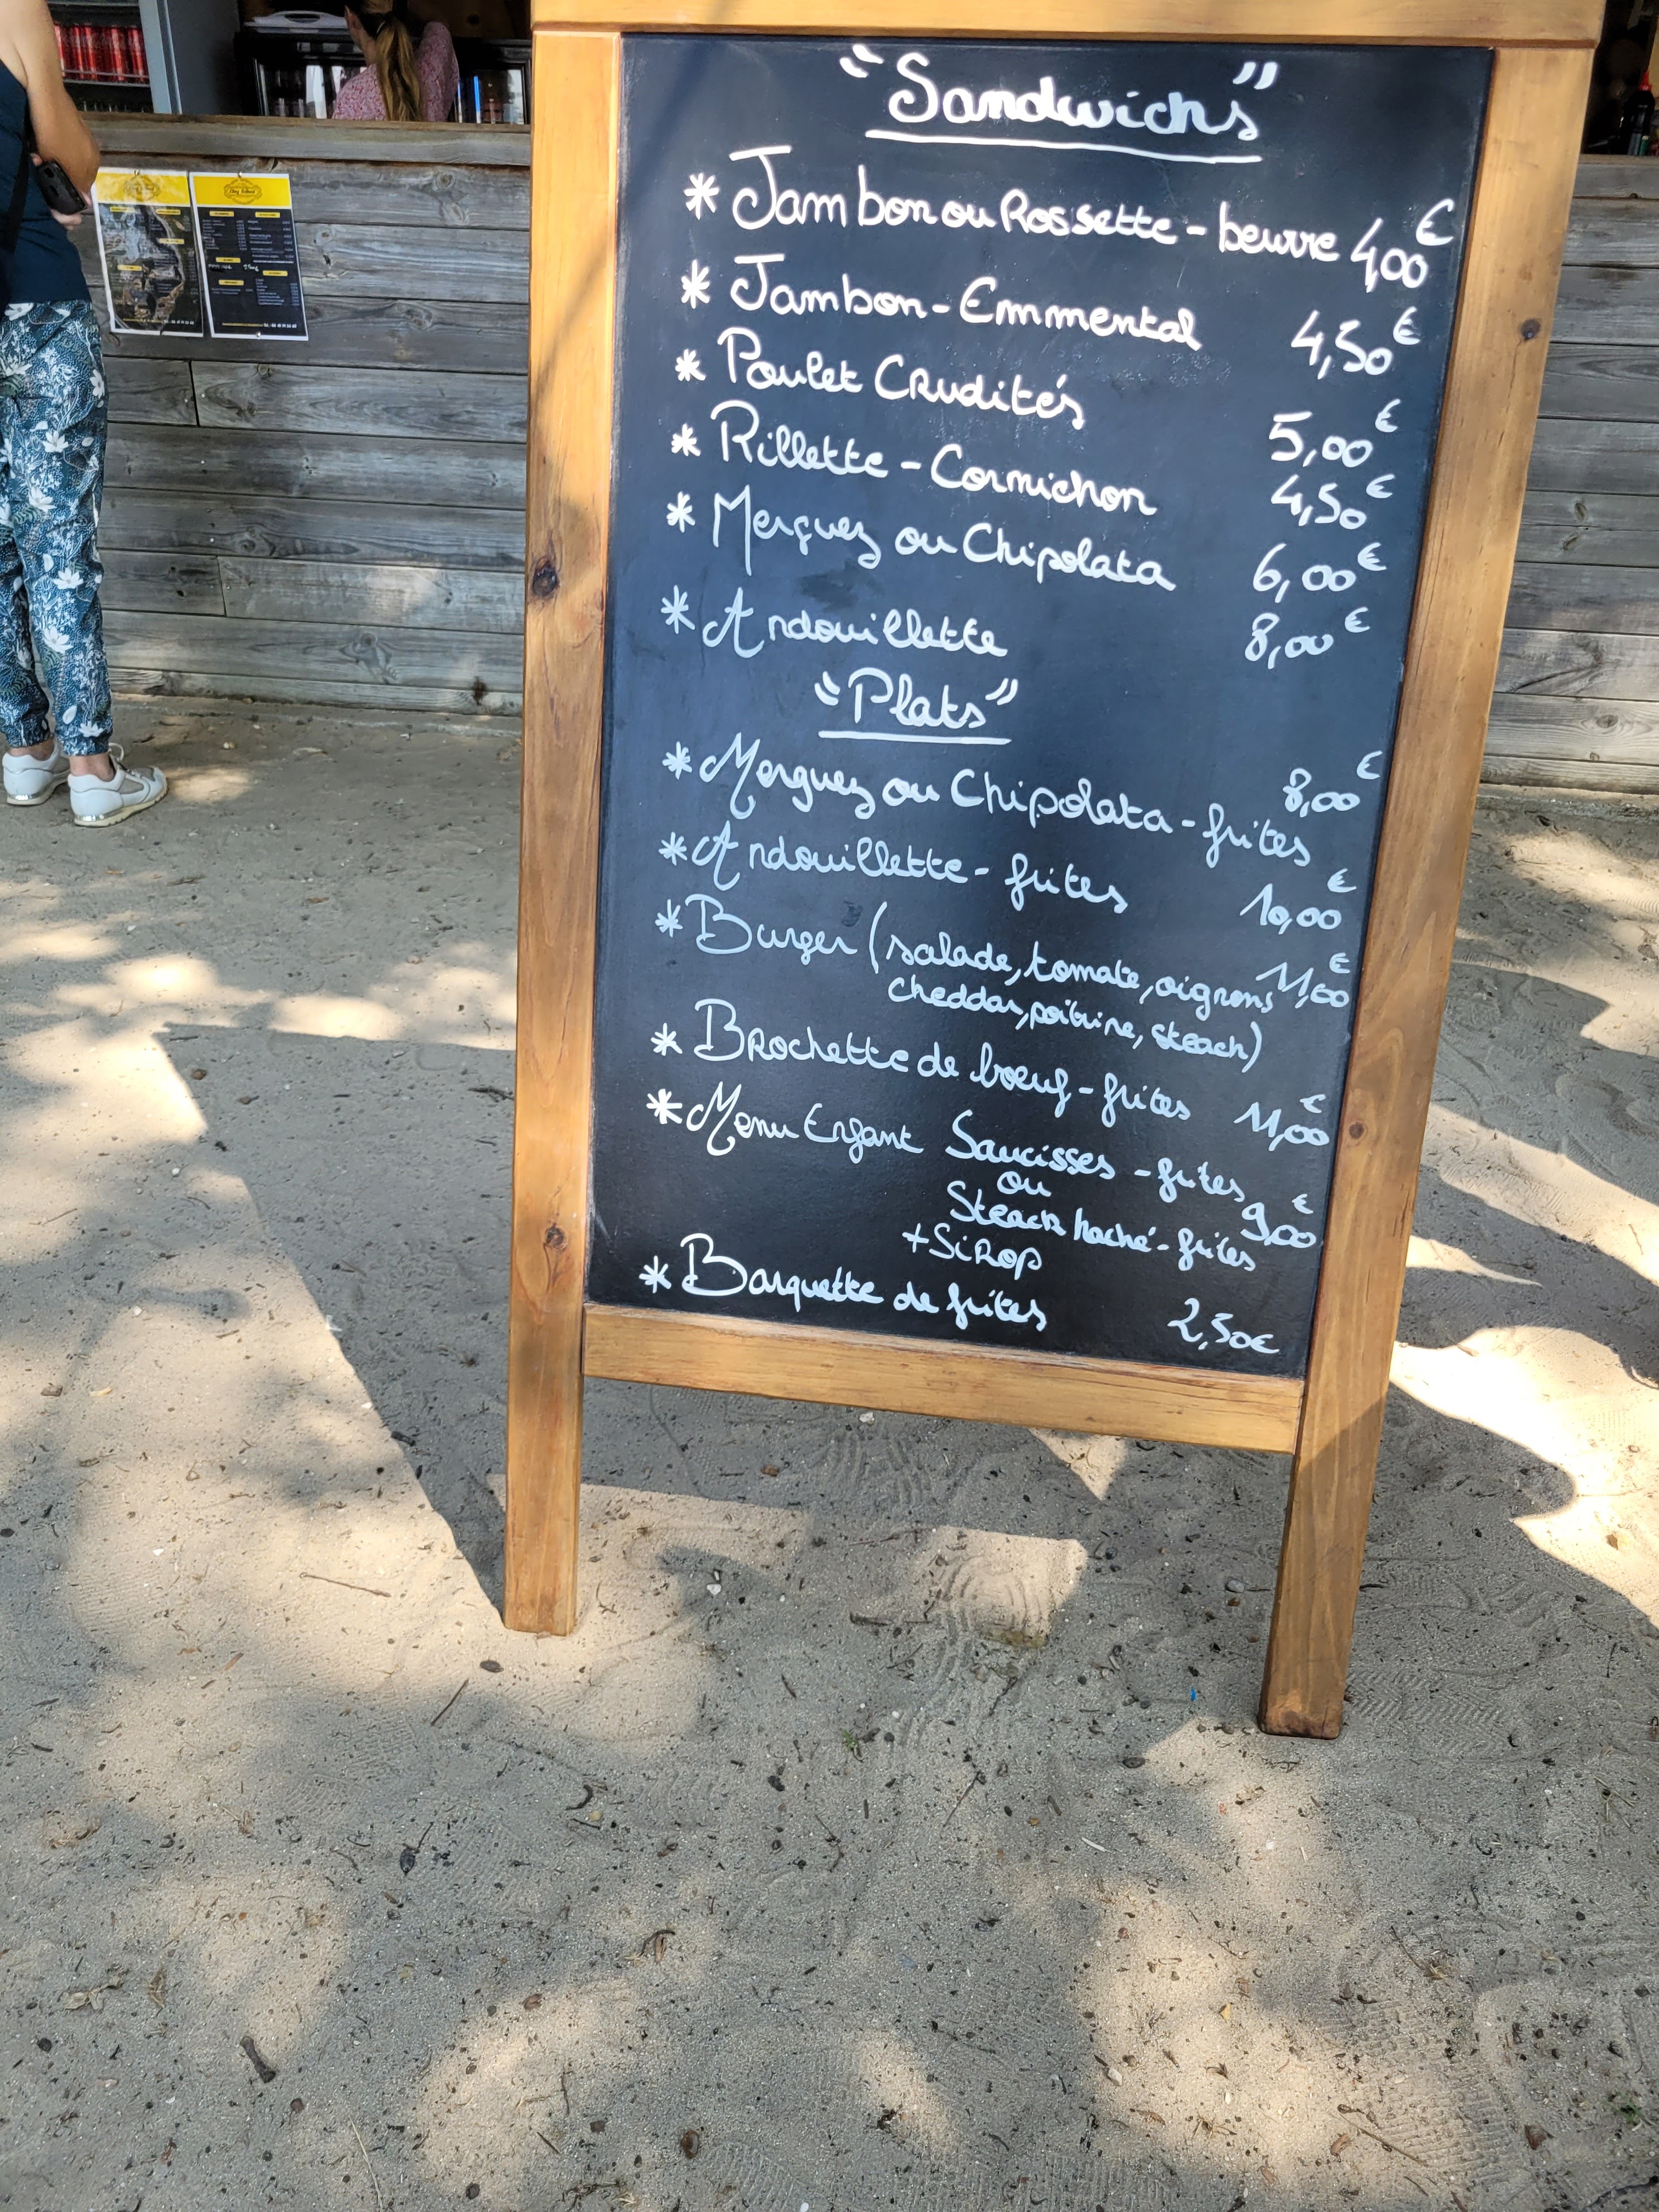 "Sandwichs"
* Jambon ou Rossette - beurre 4,00€
* Jambon - Emmental 4,50€
* Poulet Crudités 5,00€
* Rillette - Cornichon 4,50€
* Merguez ou Chipolata 6,00€
* Andouillette 8,00€
"Plats"
* Merguez ou Chipolata - frites 8,00€
* Andouillette - frites 10,00€
* Burger (salade, tomate, oignons 11,00€
cheddar, poitrine, steach)
* Brochette de boeuf - frites 11,00€
* Menu Enfant Saucisses - frites 9,00€
ou
Steack haché - frites
+ SiRop
* Barquette de frites 2,50€